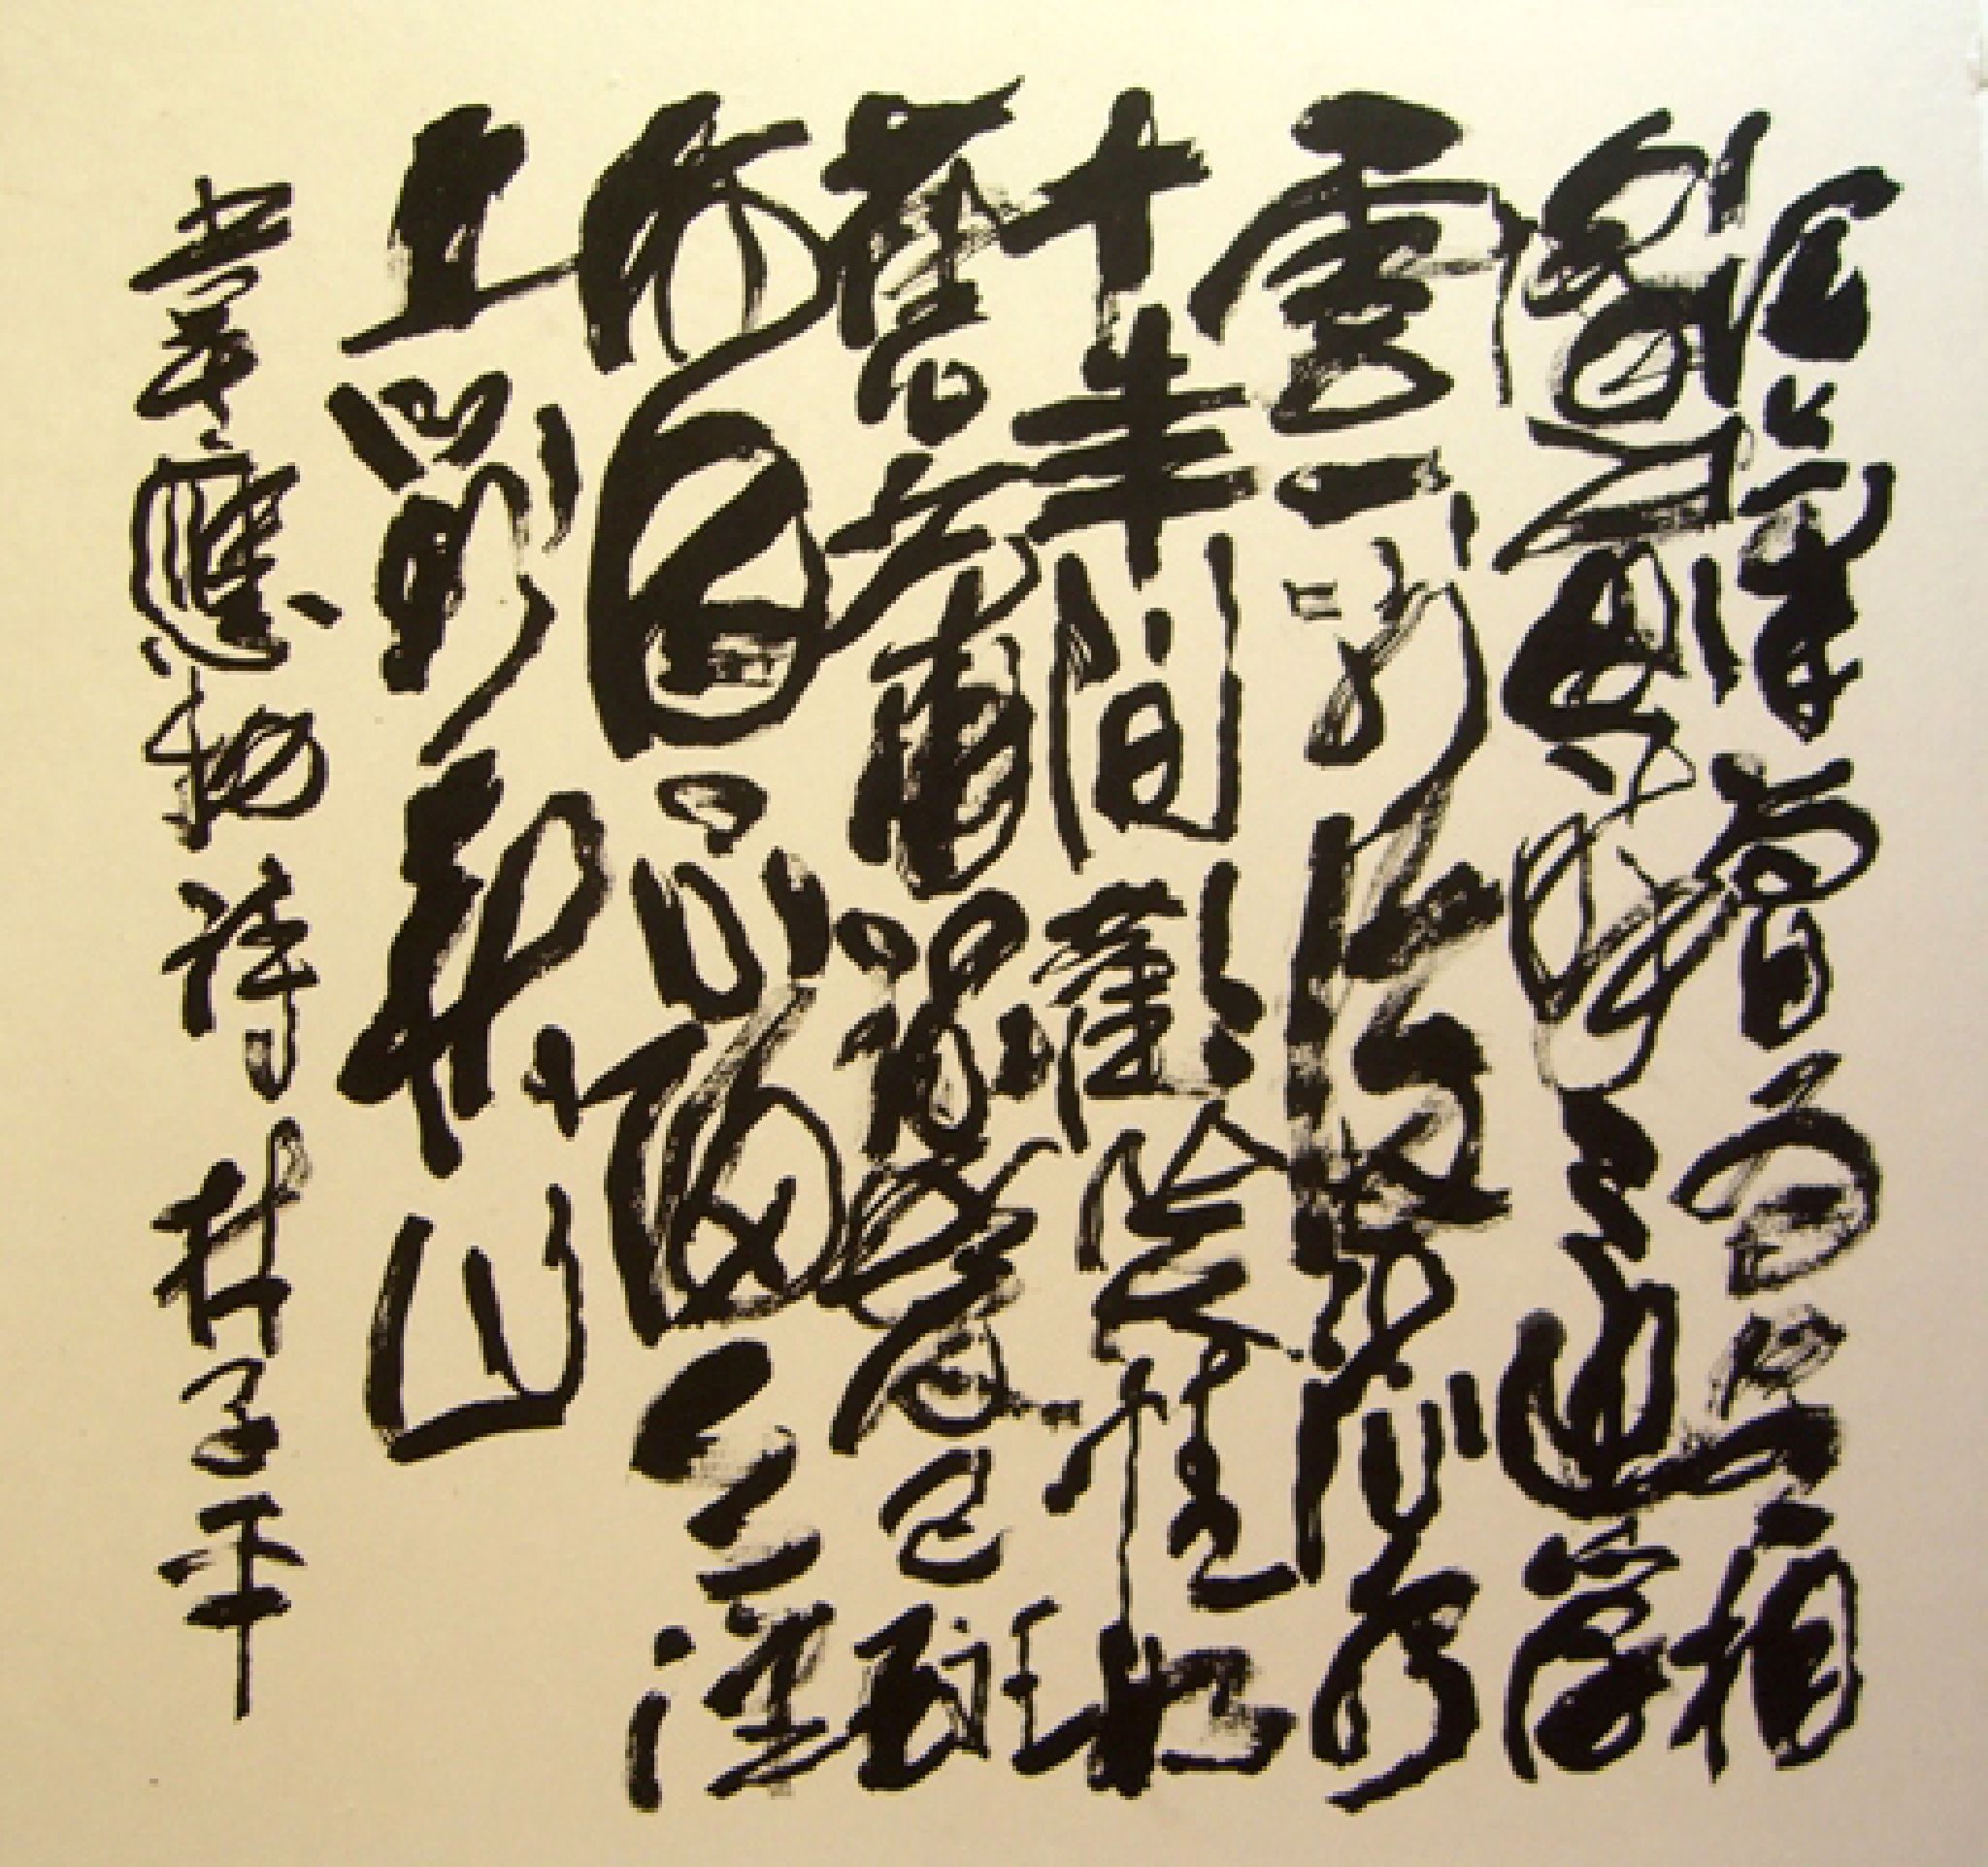 江漢曾為客相
逢每醉還浮
雲一別後流水
十年間歡笑情如
舊蕭疏鬢已斑
何因不歸去淮
上對秋山
書韋應物詩 林子平